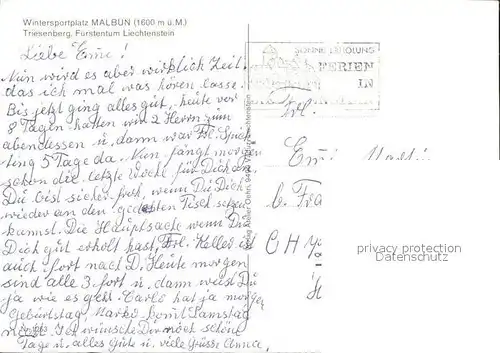 Wintersportplatz MALBUN (1600 m ü.M.)
Triesenberg, Fürstentum Liechtenstein
Liebe Emi!
Nun wird es aber wirklich Zeit,
das ich mal was hören lasse.
Bis jetzt ging alles gut, heute vor
8 Tagen hatten wir 2 Herrn zum
abendessen u. dann war Frl.
5 Tage da. Nun fängt morgen
schon die letzte Woche für Dich an.
Du bist sicher froh, wenn Du Dich
wieder an den gedeckten Tisch setzen
kannst. Die Hauptsache wenn Du
Dich gut erholt hast, Frl. Keller ist
auch fort nach D. Heute morgen
sind alle 3 fort u. dann weist Du
ja wie es geht. Carlo hat ja morgen
Geburtstag Marko kommt Samstag
Ich wünsche Dir noch schöne
Tage u. alles Gute u. viele Grüsse Anna.
SONNE ERHOLUNG
FERIEN
IN
Frl.
Emi
b. Fra
CH
privacy protection
Datenschutz